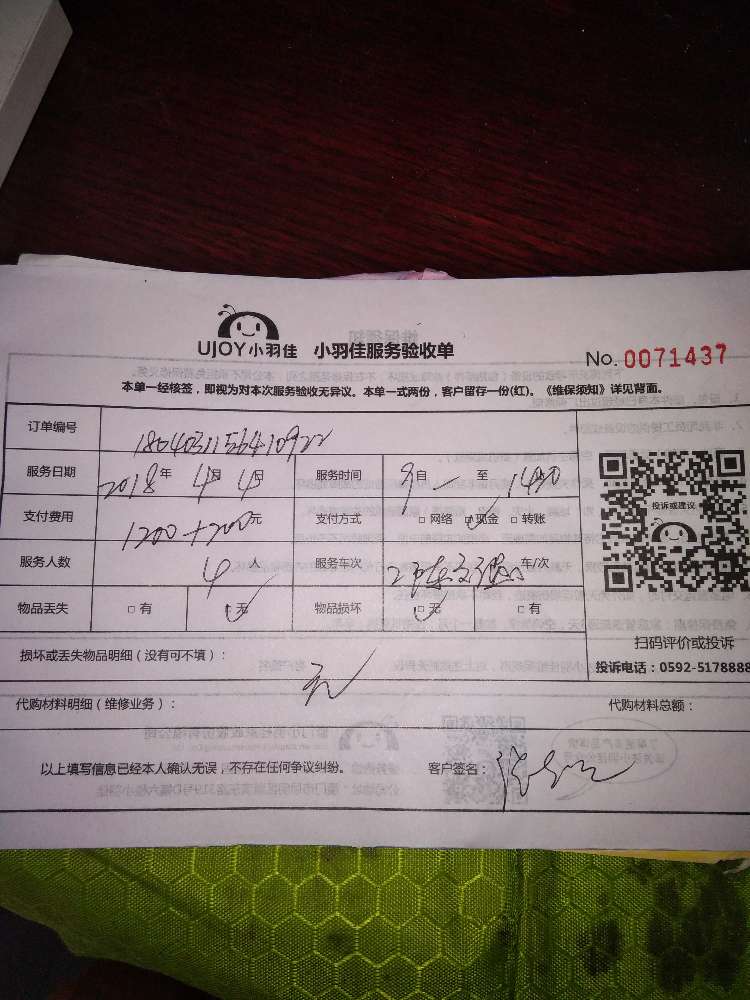 UJOY小羽佳 小羽佳服务验收单 No. 0071437
本单一经核签，即视为对本次服务验收无异议。本单一式两份，客户留存一份(红)。《维保须知》详见背面。
订单编号
服务日期 2018年 4月 4日 服务时间 9自 至
支付费用 1200+200元 支付方式 □ 网络 □ 现金 □ 转账
服务人数 4人 服务车次 车/次
物品丢失 □ 有 □ 无 物品损坏 □ 无 □ 有
投诉或建议
扫码评价或投诉
投诉电话：0592-5178888
损坏或丢失物品明细（没有可不填）：
无
代购材料明细（维修业务）： 代购材料总额：
以上填写信息已经本人确认无误，不存在任何争议纠纷。 客户签名：